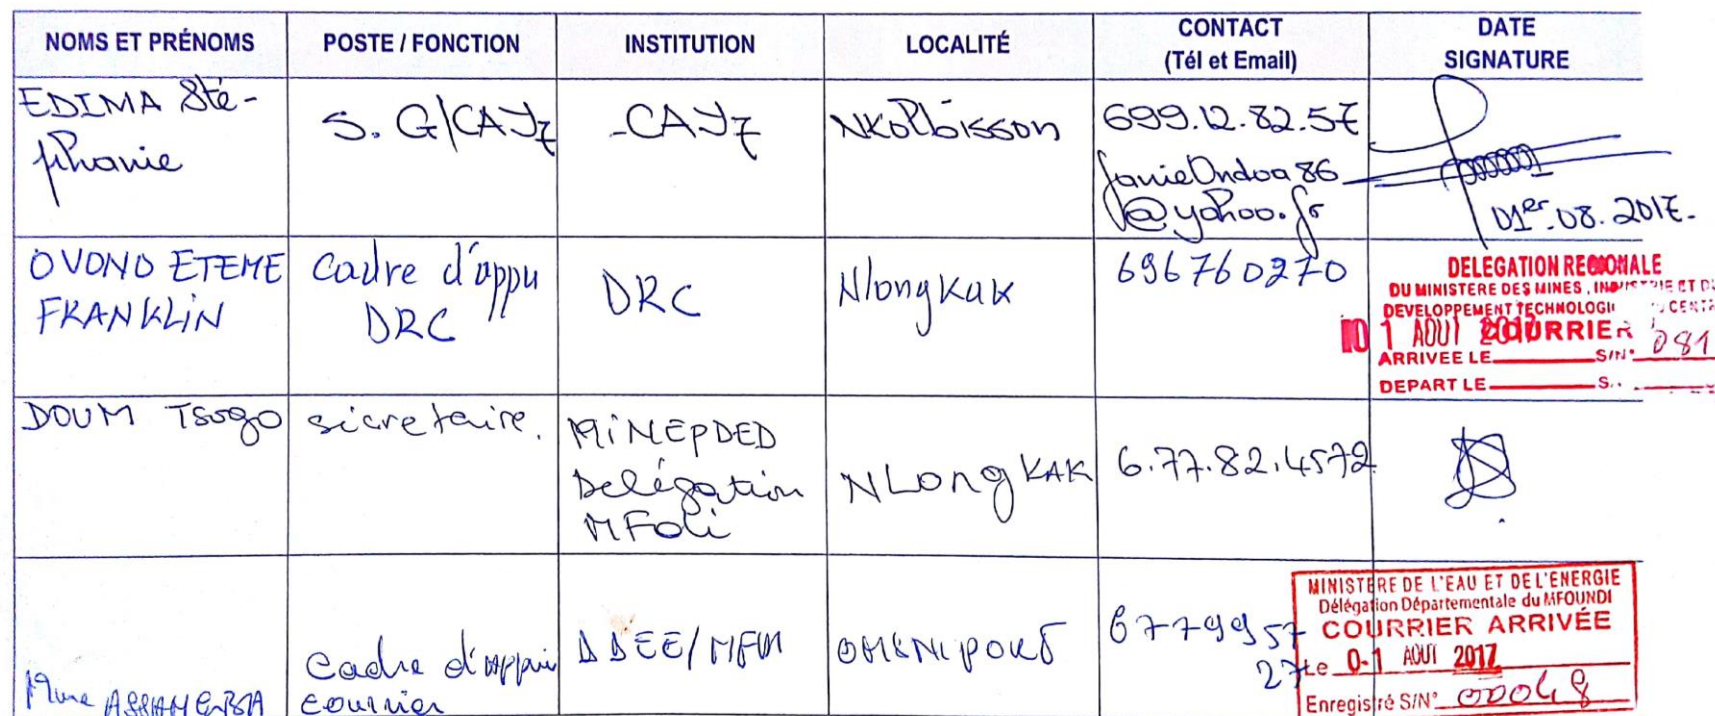 NOMS ET PRÉNOMS POSTE / FONCTION INSTITUTION LOCALITÉ CONTACT (Tél et Email) DATE SIGNATURE
EDIMA Sté-
phanie
S. G/CAY7
-CAY7
Nkolbisson
699.12.82.57
fanieOndoa86
@yahoo.fr
01er.08.2017.
OVONO ETEME
FRANKLIN
Cadre d'appu
DRC
DRC
Nlongkak
696760270
DELEGATION REGIONALE
DU MINISTERE DES MINES, INDUSTRIE ET DU
DEVELOPPEMENT TECHNOLOGI CENTR
01 AOUT 2017
COURRIER
ARRIVEE LE S/N° 081
DEPART LE S
DOUM Tsogo
sécretaire.
MINEPDED
Delégation
MFoli
NLongKAK
6.77.82.4572
Mme
Cadre d'appui
courrier
DDEE/MFM
OMNIPORT
6779957
27
MINISTERE DE L'EAU ET DE L'ENERGIE
Délégation Départementale du MFOUNDI
COURRIER ARRIVÉE
Le 0-1 AOUT 2017
Enregistré S/N° 00048